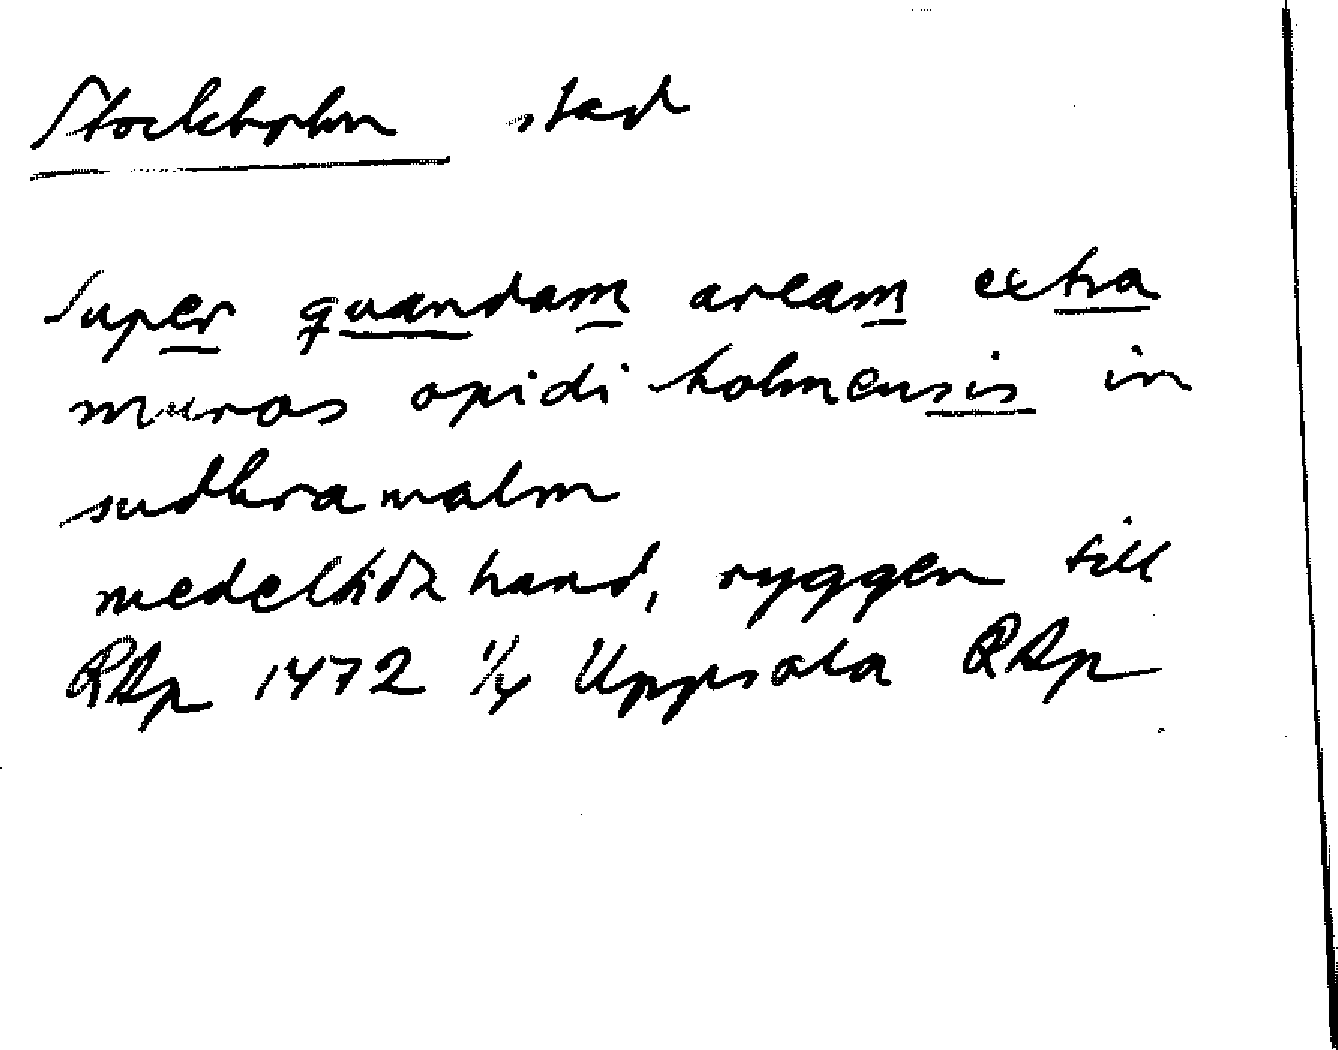 Stockholm stad
Super quandam aream extra
muros opidi holmensis in
sudhramalm
medeltida hand, ryggen till
RAp 1472 1/4 Uppsala RAp